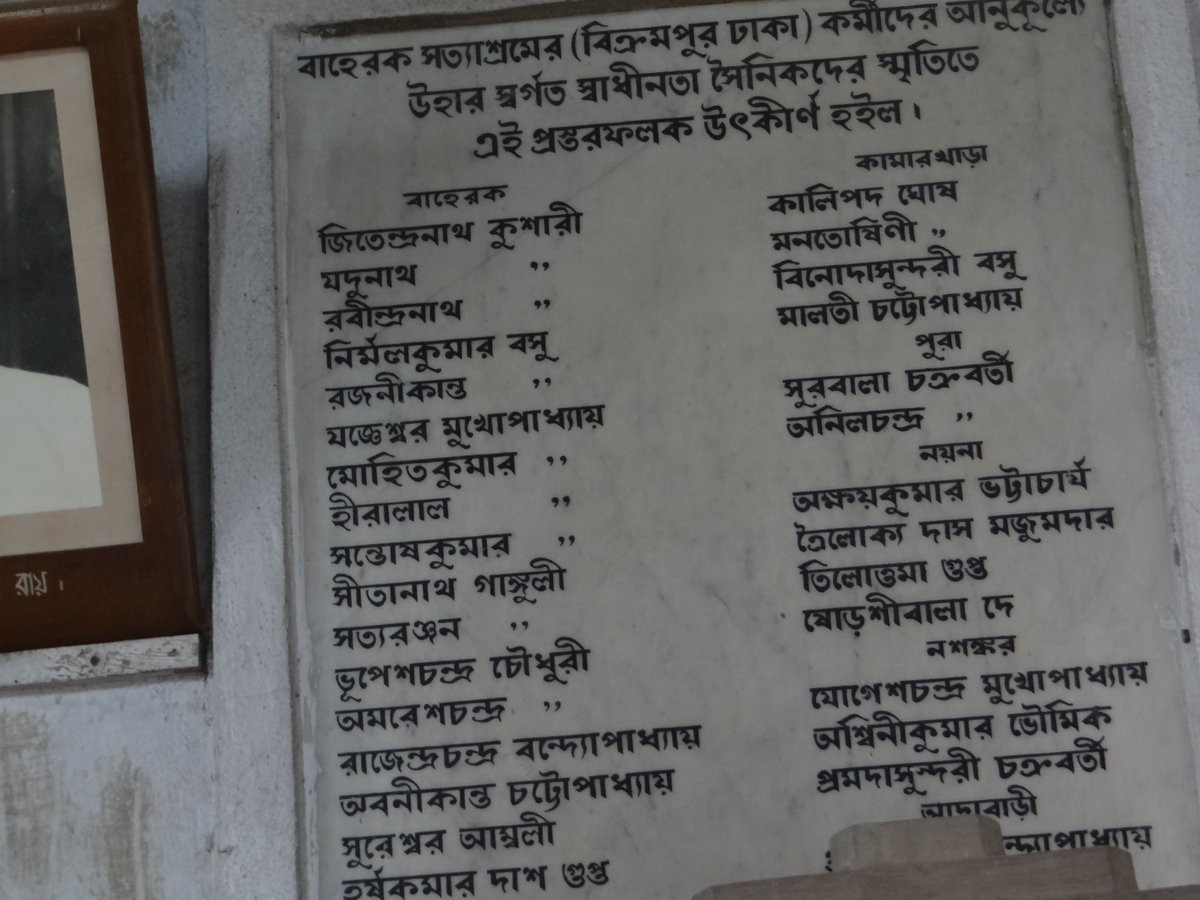 বাহেরক সত্যাশ্রমের (বিক্রমপুর ঢাকা) কর্মীদের আনুকূল্যে
উহার স্বর্গত স্বাধীনতা সৈনিকদের স্মৃতিতে
এই প্রস্তরফলক উৎকীর্ণ হইল।
বাহেরক
জিতেন্দ্রনাথ কুশারী
যদুনাথ ,,
রবীন্দ্রনাথ ,,
নির্মলকুমার বসু
রজনীকান্ত ,,
যজ্ঞেশ্বর মুখোপাধ্যায়
মোহিতকুমার ,,
হীরালাল ,,
সন্তোষকুমার ,,
সীতানাথ গাঙ্গুলী
সত্যরঞ্জন ,,
ভূপেশচন্দ্র চৌধুরী
অমরেশচন্দ্র ,,
রাজেন্দ্রচন্দ্র বন্দ্যোপাধ্যায়
অবনীকান্ত চট্টোপাধ্যায়
সুরেশ্বর আম্বলী
দাশ গুপ্ত
কামারখাড়া
কালিপদ ঘোষ
মনতোষিণী ,,
বিনোদাসুন্দরী বসু
মালতী চট্টোপাধ্যায়
পুরা
সুরবালা চক্রবর্তী
অনিলচন্দ্র ,,
নয়না
অক্ষয়কুমার ভট্টাচার্য
ত্রৈলোক্য দাস মজুমদার
তিলোত্তমা গুপ্ত
ষোড়শীবালা দে
নশঙ্কর
যোগেশচন্দ্র মুখোপাধ্যায়
অশ্বিনীকুমার ভৌমিক
প্রমদাসুন্দরী চক্রবর্তী
আদাবাড়ী
রায়।